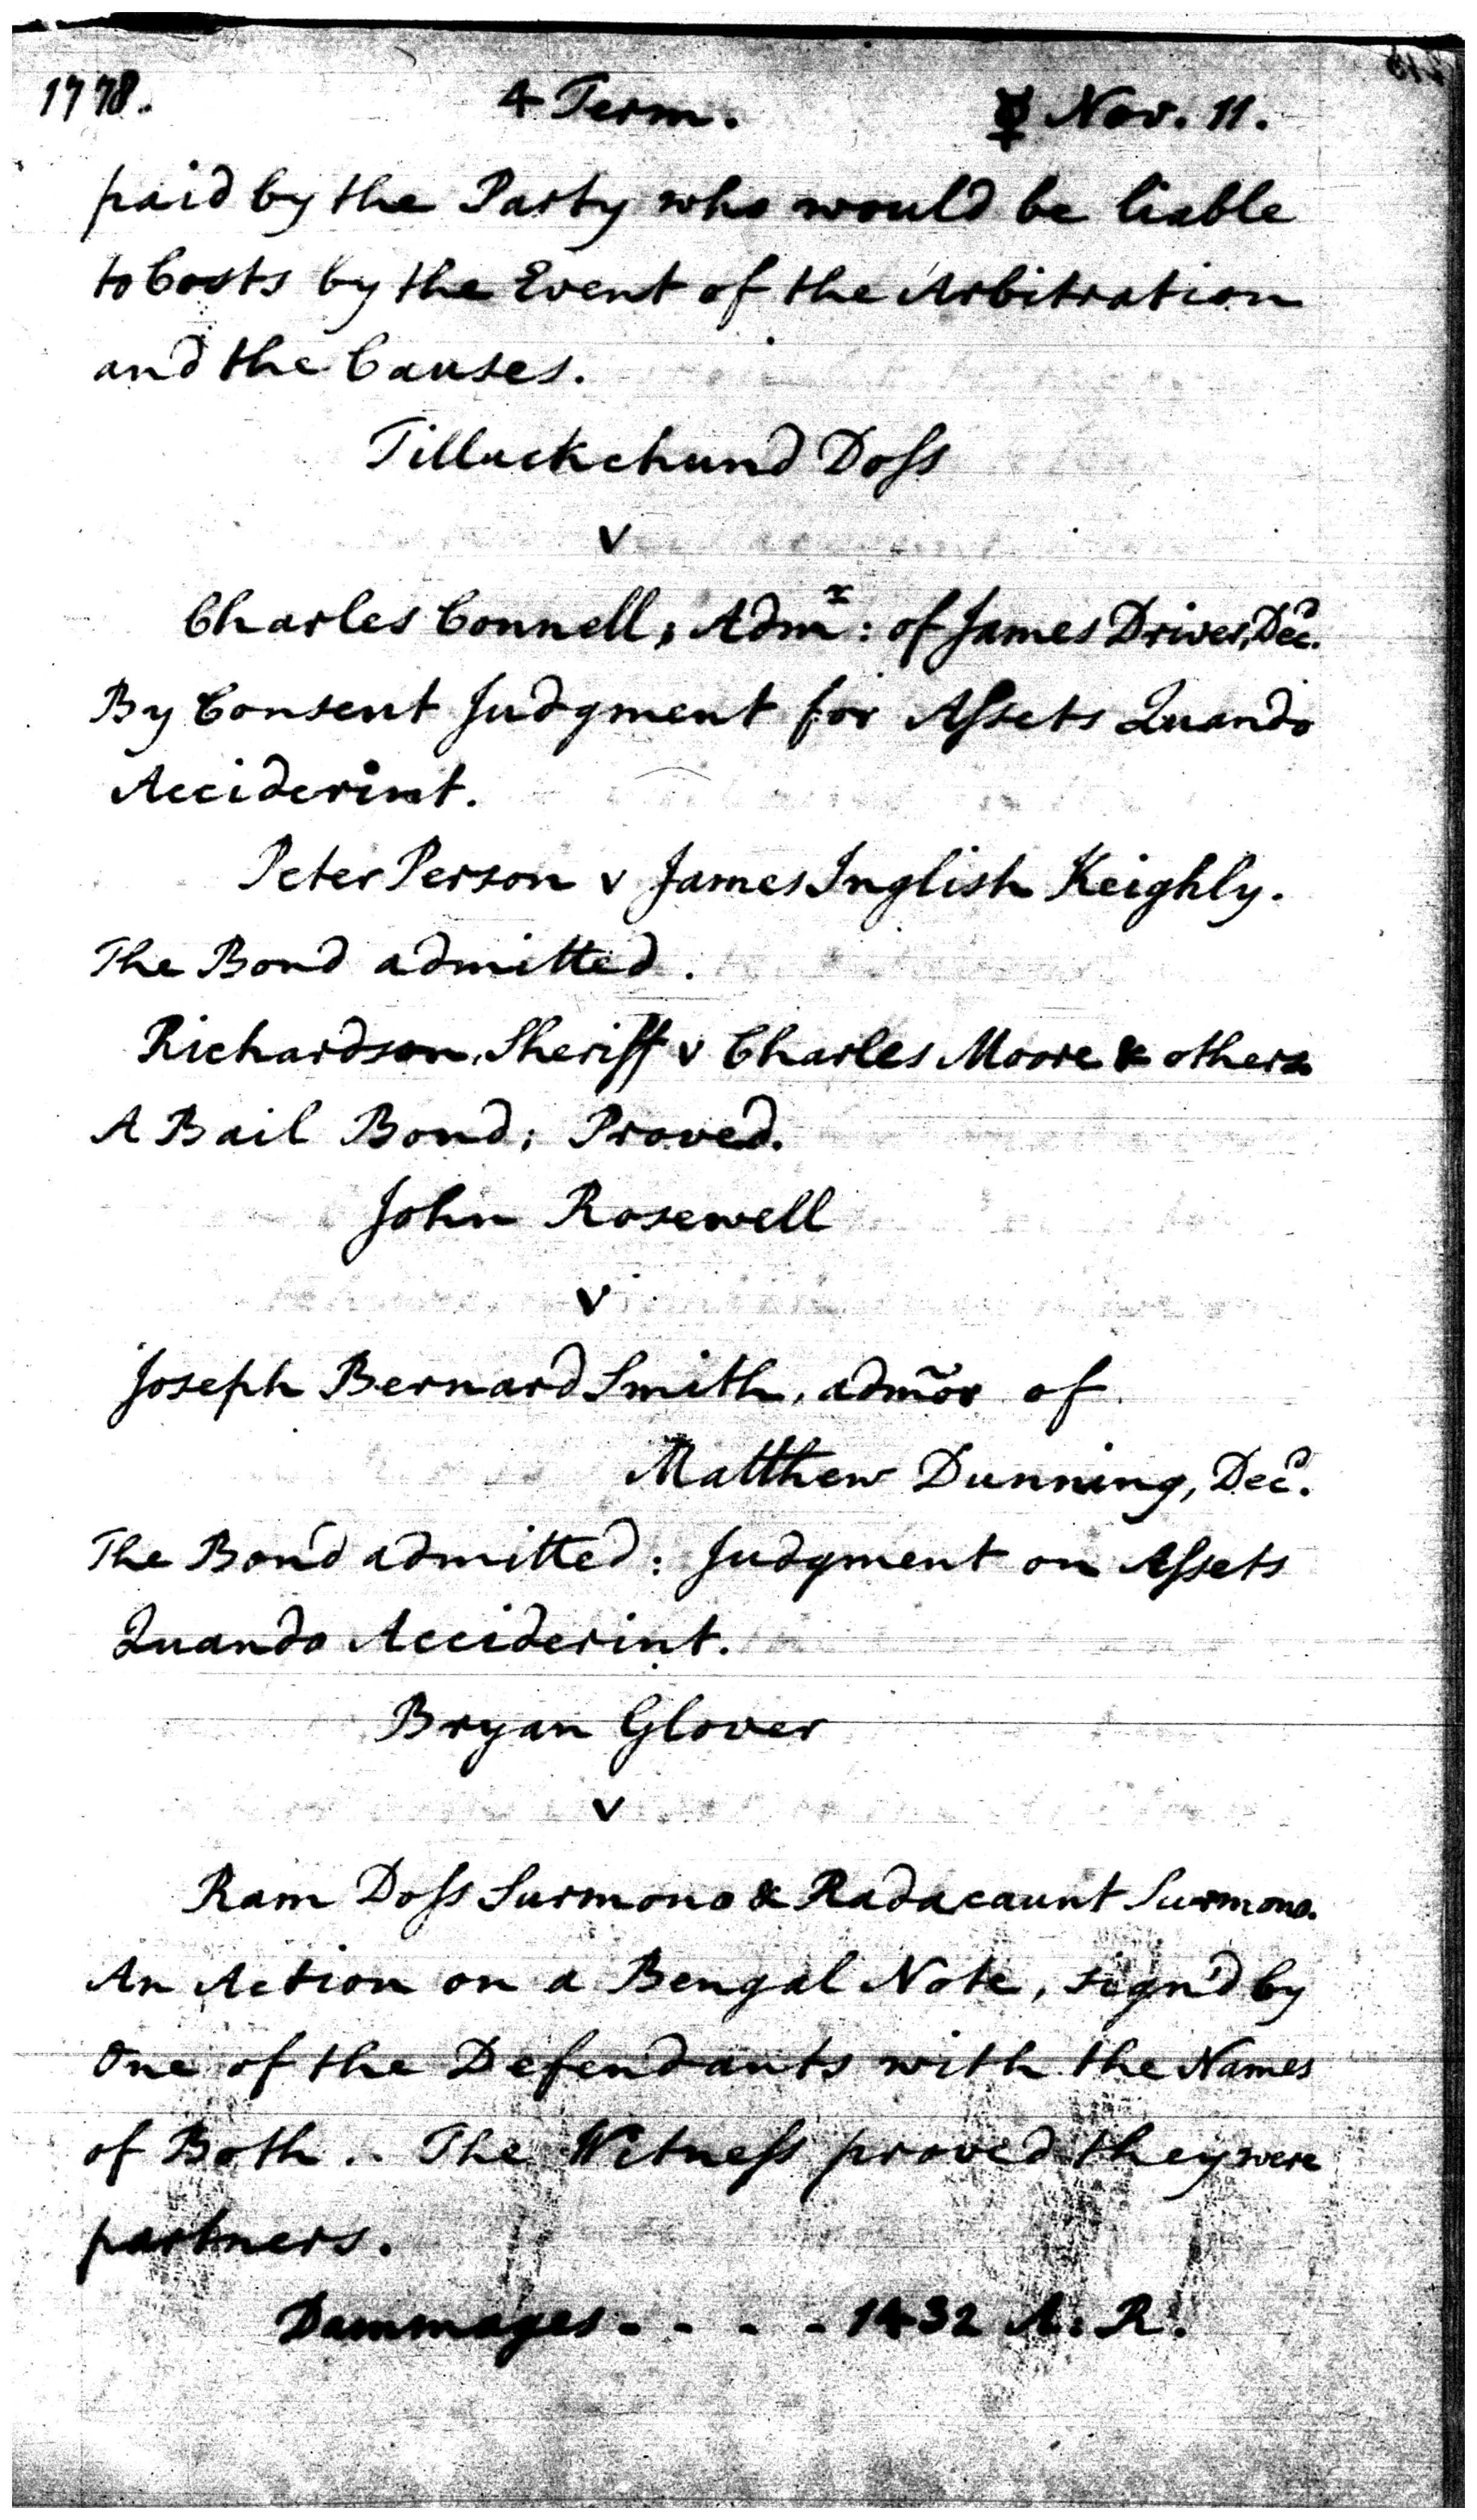 1778. 4 Term. ☿ Nov. 11.
paid by the Party who would be liable
to Costs by the Event of the Arbitration
and the Causes.
Tilluckchund Doſs
v
Charles Connell, Admr: of James Driver, Decd.
By Consent Judgment for Aſsets Quando
Acciderint.
Peter Person v James Inglish Keighly.
The Bond admitted.
Richardson, Sheriff v Charles Moore & others
A Bail Bond; Proved.
John Rosewell
v
Joseph Bernard Smith, adm̃or of
Matthew Dunning, Decd.
The Bond admitted: Judgment on Aſsets
Quando Acciderint.
Bryan Glover
v
Ram Doſs Surmono & Radacaunt Surmono.
An Action on a Bengal Note, sign'd by
One of the Defendants with the Names
of Both .. The Witneſs proved they were
partners.
Dammages - - - - 1432 A. R.